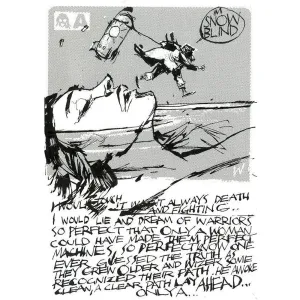 A
I'M
SNOW
BLIND
I WOULD
ALWAYS DEATH
AND FIGHTING...
I WOULD LIE AND DREAM OF WARRIORS
SO PERFECT THAT ONLY A WOMAN
COULD HAVE MADE THEM
MACHINES, SO PERFECT NO ONE
EVER GUESSED THE TRUTH AS
THEY GREW OLDER AND WISER, SOME
RECOGNIZED THEIR PATH. HE AWOKE
CLEAN, A CLEAR PATH LAY AHEAD...
ONLY A...